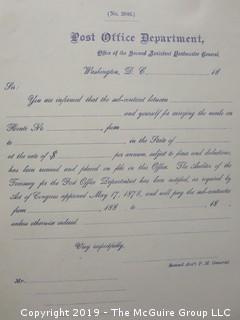 (No. 2846.)
Post Office Department,
Office of the Second Assistant Postmaster General,
Washington, D. C. 18
Sir:
You are informed that the sub-contract between
and yourself for carrying the mails on
Route No. , from
to , in the State of
at the rate of $ per annum, subject to fines and deductions,
has been received and placed on file in this Office. The Auditor of the
Treasury for the Post Office Department has been notified, as required by
Act of Congress approved May 17, 1878, and will pay the sub-contractor
from , 188 to 18 ,
unless otherwise ordered.
Very respectfully,
Second Ass't P. M. General.
Mr.
Copyright 2019 - The McGuire Group LLC